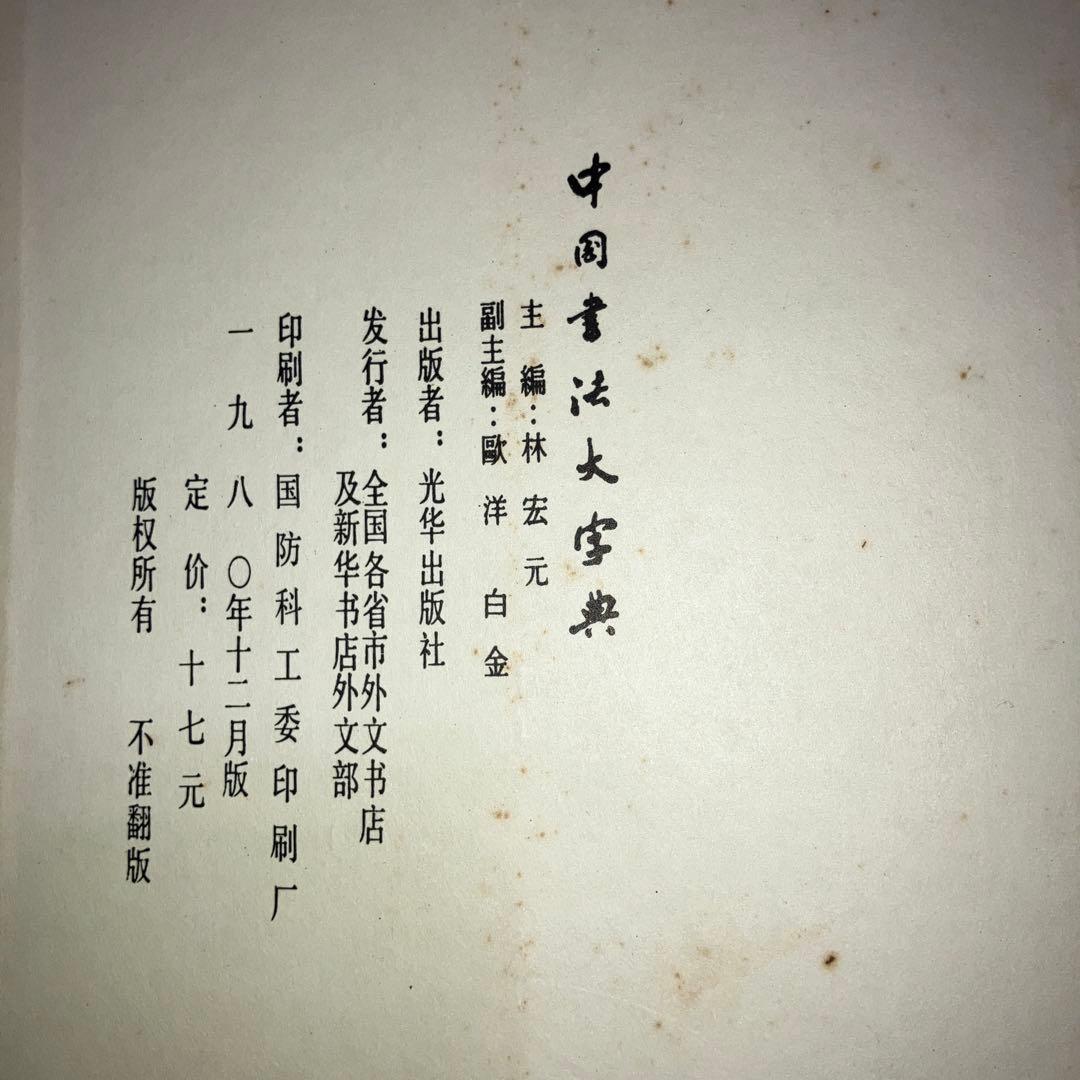 中国书法大字典
主编：林宏元
副主编：歐洋 白金
出版者：光华出版社
发行者：全国各省市外文书店
及新华书店外文部
印刷者：国防科工委印刷厂
一九八〇年十二月版
定价：十七元
版权所有 不准翻版